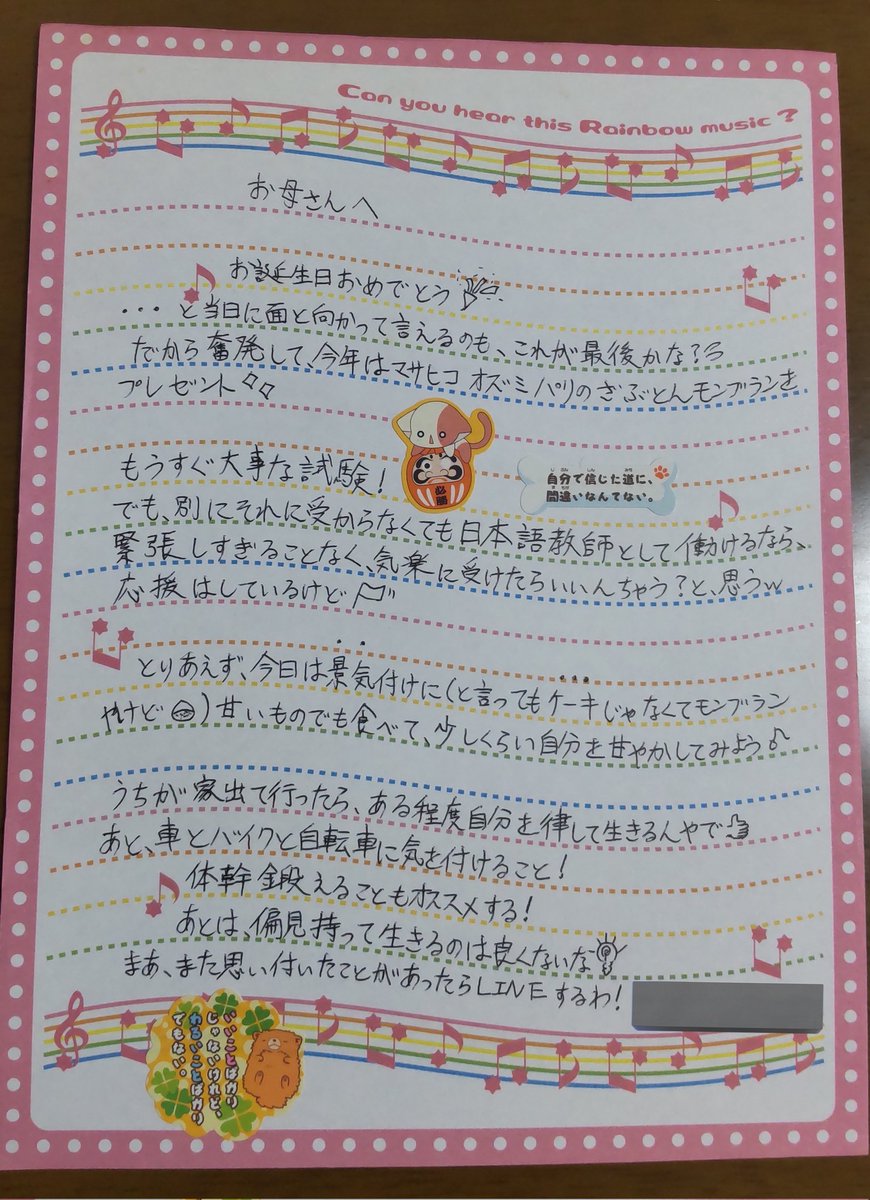 Can you hear this Rainbow music?
お母さんへ
お誕生日おめでとう
・・・と当日に面と向かって言えるのも、これが最後かな?
だから奮発して、今年はマサヒコ オズミ パリのざぶとんモンブランを
プレゼント
必勝
自分で信じた道に、
間違いなんてない。
もうすぐ大事な試験!
でも、別にそれに受からなくても日本語教師として働けるなら、
緊張しすぎることなく、気楽に受けたらいいんちゃう?と、思うw
応援はしているけど
とりあえず、今日は景気付けに(と言ってもケーキじゃなくてモンブラン
やけど)甘いものでも食べて、少しくらい自分を甘やかしてみよう♫
うちが家出て行ったら、ある程度自分を律して生きるんやで
あと、車とバイクと自転車に気を付けること!
体幹鍛えることもオススメする!
あとは、偏見持って生きるのは良くないな
まあ、また思い付いたことがあったらLINEするわ!
いいことばかり
じゃないけれど、
わるいことばかり
でもない。